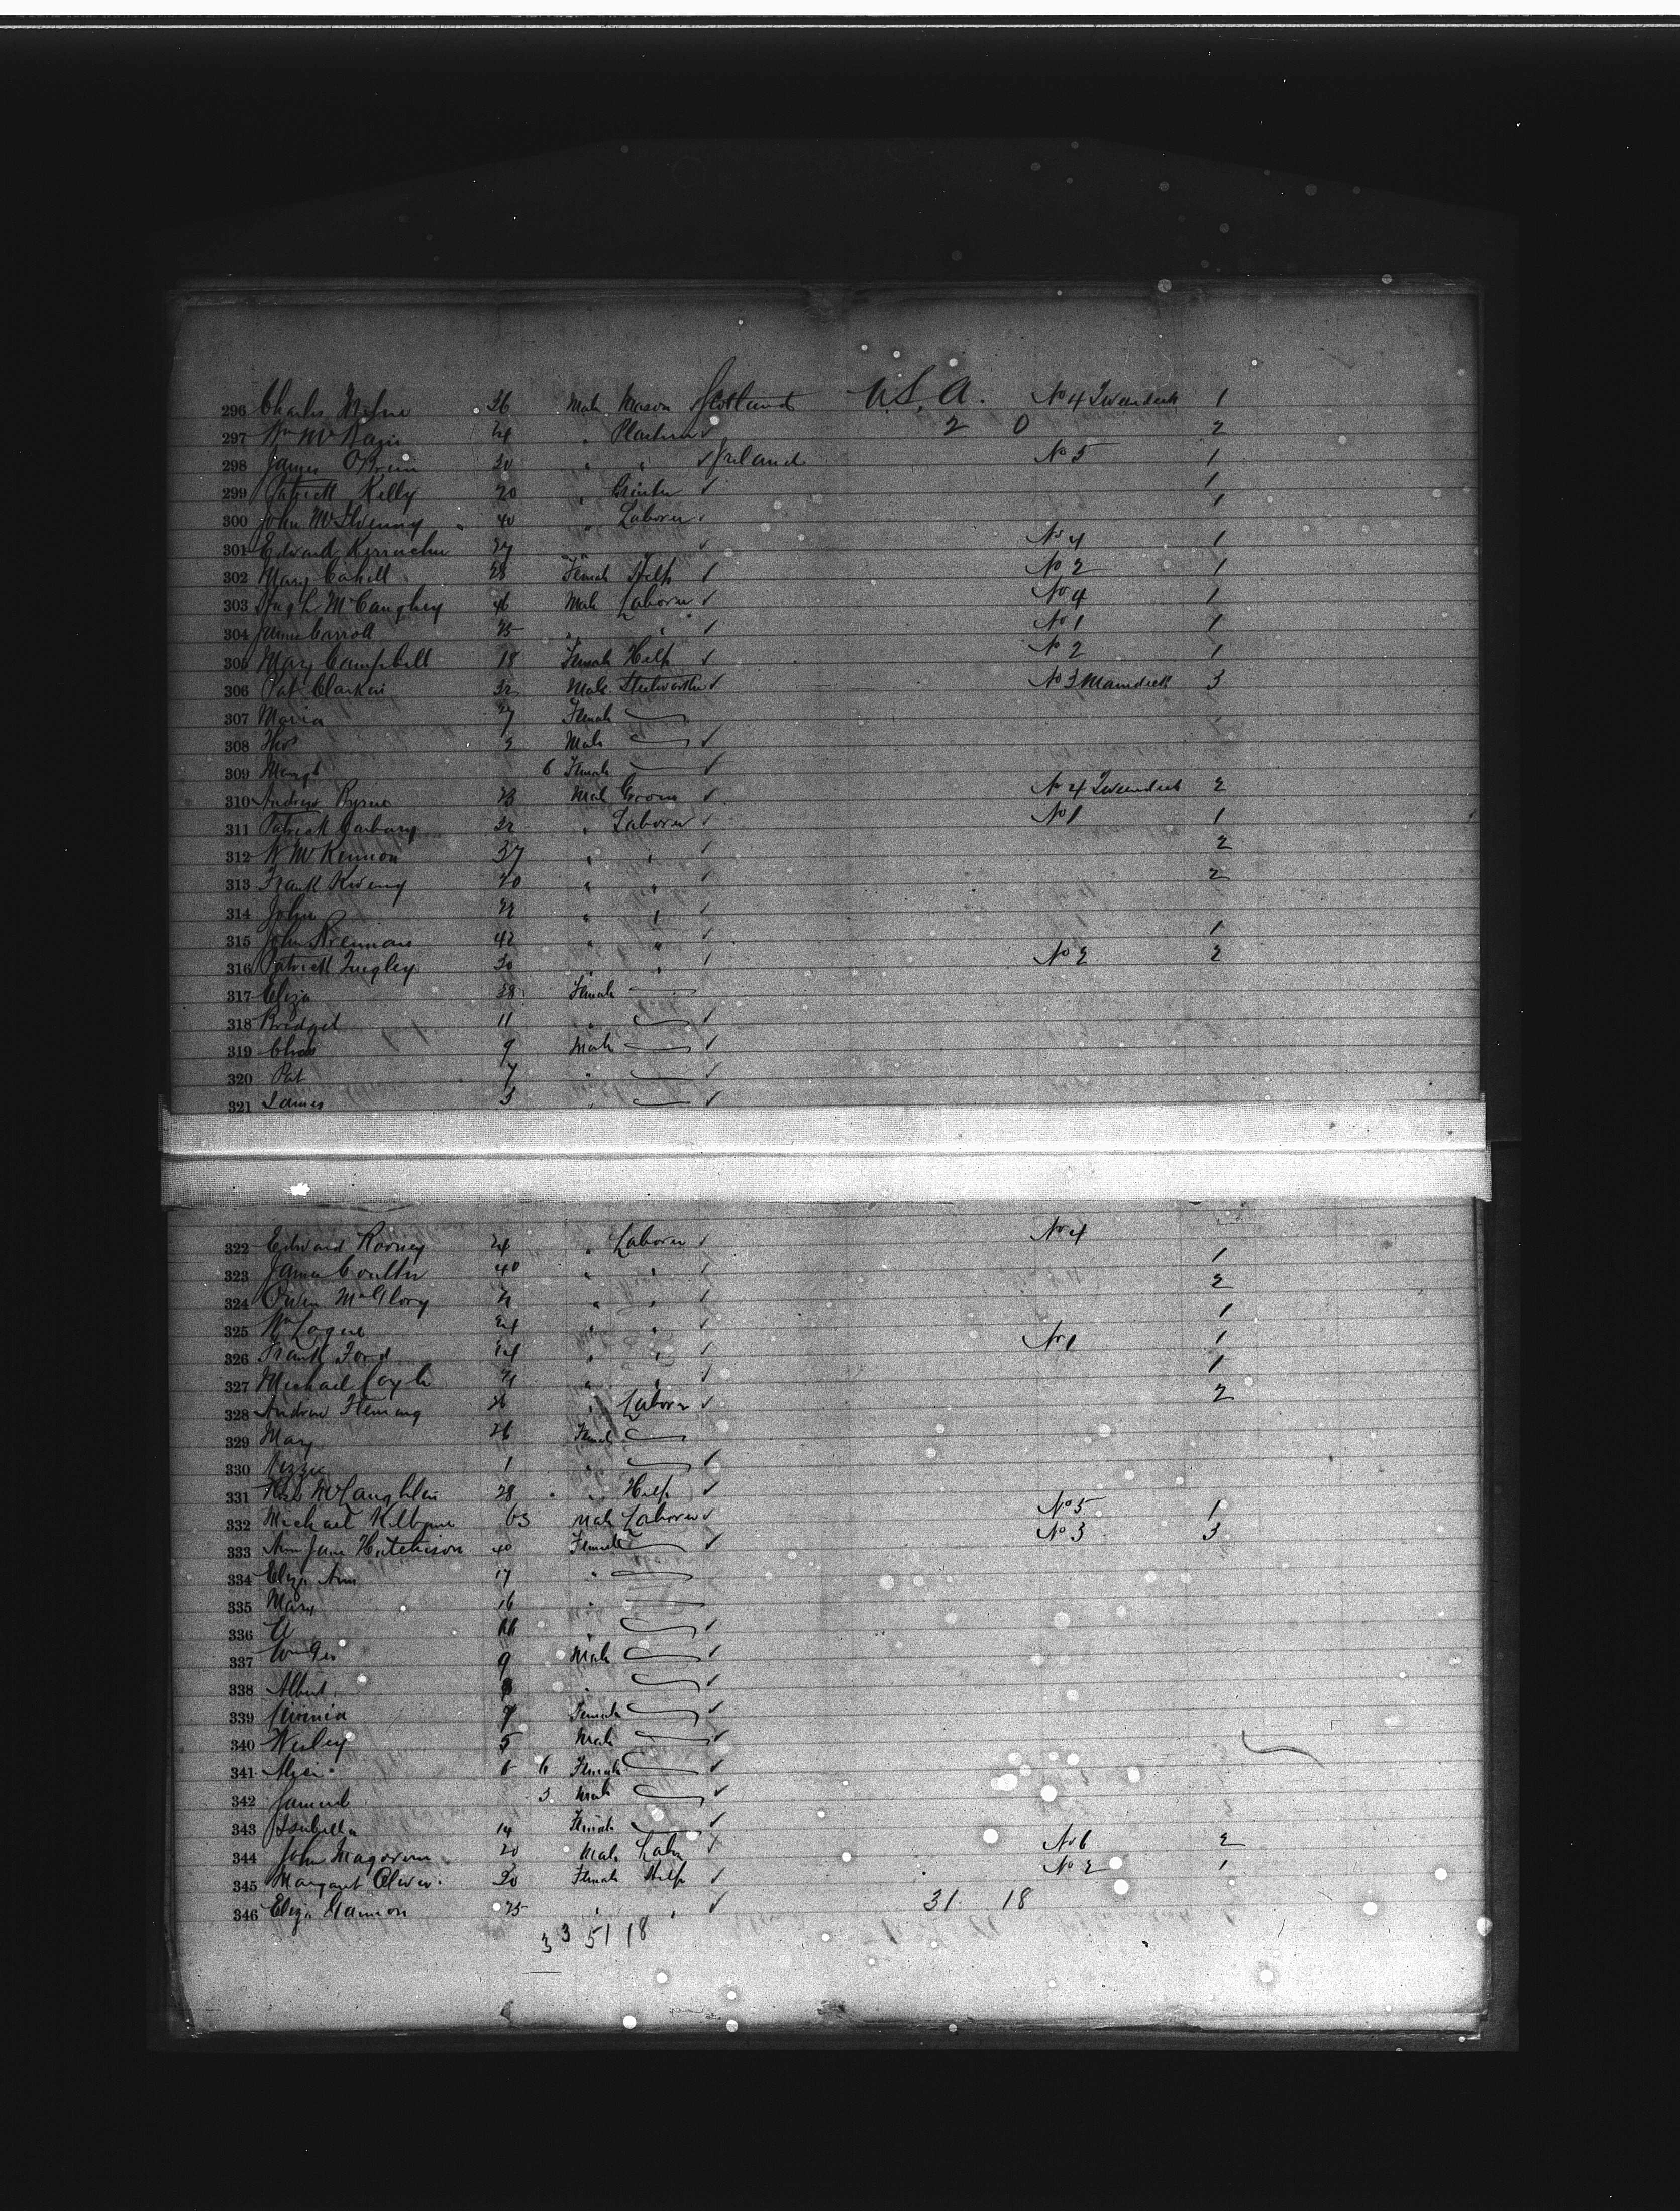 296 Charles 36 Male Mason Scotland U.S.A. No 4 Tweendeck 1
297 Wm 24 " ✓ 2 0 2
298 James OBrien 30 " " ✓ Ireland No 5 1
299 Patrick Kelly 20 " ✓ 1
300 John McIlvenny 40 " Laborer 1
301 Edward 27 " ✓ No 4 1
302 Mary Cahill 28 Female Help ✓ No 2 1
303 Hugh McCaughey 46 Male Laborer ✓ No 4 1
304 James Carroll 25 " " ✓ No 1 1
305 Mary Campbell 18 Female Help ✓ No 2 1
306 Pat Clarkin 32 Male ✓ No 3 Maindeck 3
307 Maria 27 Female
308 Thos 2 Male ✓
309 Margt 6 Female ✓
310 Andrew Byrne 23 Male Groom ✓ No 4 Tweendeck 2
311 Patrick Carbury 32 " Laborer ✓ No 1 1
312 McKennon 37 " " ✓ 2
313 Frank 20 " " ✓ 2
314 John 22 " " ✓
315 John Brennan 42 " " ✓ 1
316 Patrick Quigley 30 " " ✓ No 2 2
317 Eliza 38 Female
318 Bridget 11 " ✓
319 Chas 9 Male ✓
320 Pat 7 " ✓
321 James 3 " ✓
322 Edward Rooney 24 " Laborer ✓ No 4
323 James Coulter 40 " " ✓ 1
324 Owen McGlory " " ✓ 2
325 Wm Logue 24 " " ✓ 1
326 Frank Ford 24 " " ✓ No 1 1
327 Michael " " ✓ 1
328 Andrew Fleming 26 " Laborer ✓ 2
329 Mary 26 Female
330 Lizzie 1 " ✓
331 McLaughlin 28 " Help ✓
332 Michael 63 Male Laborer ✓ No 5 1
333 Ann Jane Hutchison 40 Female ✓ No 3 3
334 Eliza Ann 17 "
335 Mary 16 "
336 " ✓
337 Wm Geo 9 Male ✓
338 Albert " ✓
339 7 Female ✓
340 Wesley 5 Male ✓
341 6 Female ✓
342 Samuel 3 Male ✓
343 Isabella 14 Female ✓
344 John Magovern 20 Male No 6 2
345 Margaret Oliver 20 Female Help ✓ No 2 1
346 Eliza Gannon 25 " " ✓ 31 18
3 3 51 18